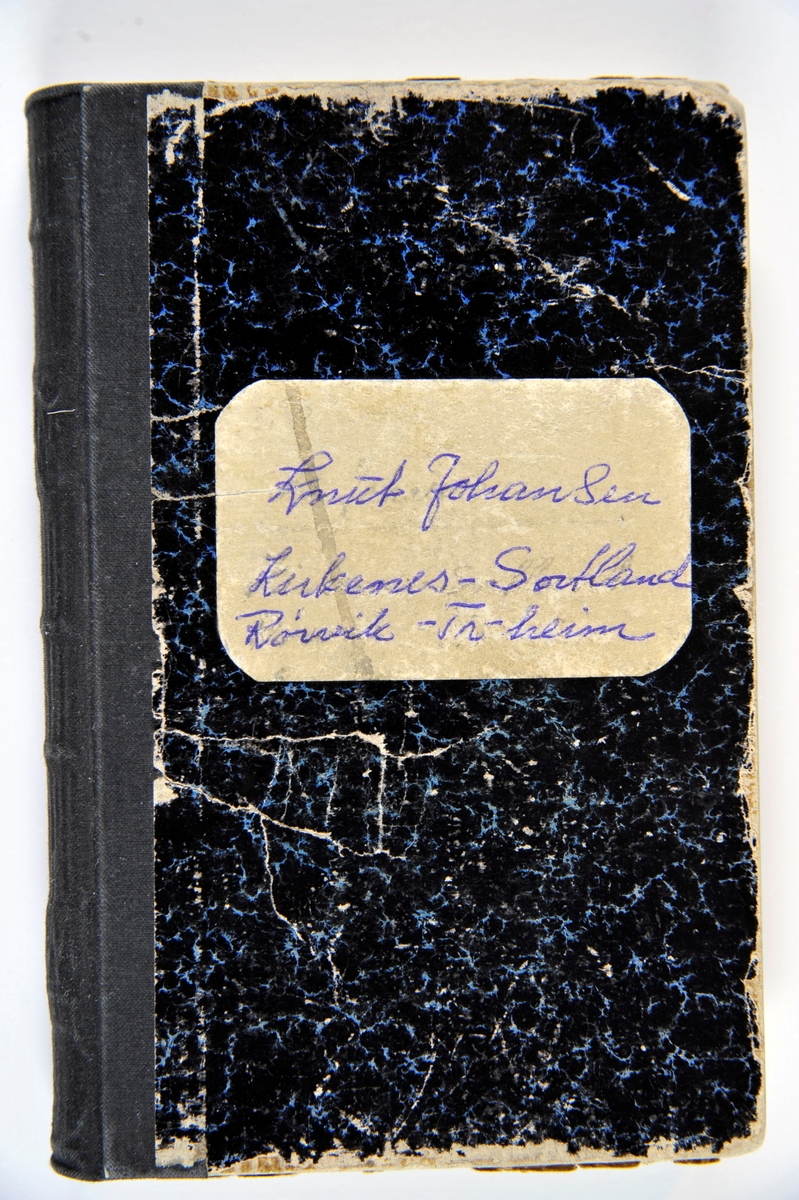 Knut Johansen
Kirkenes - Sortland
Rørvik - Tr-heim